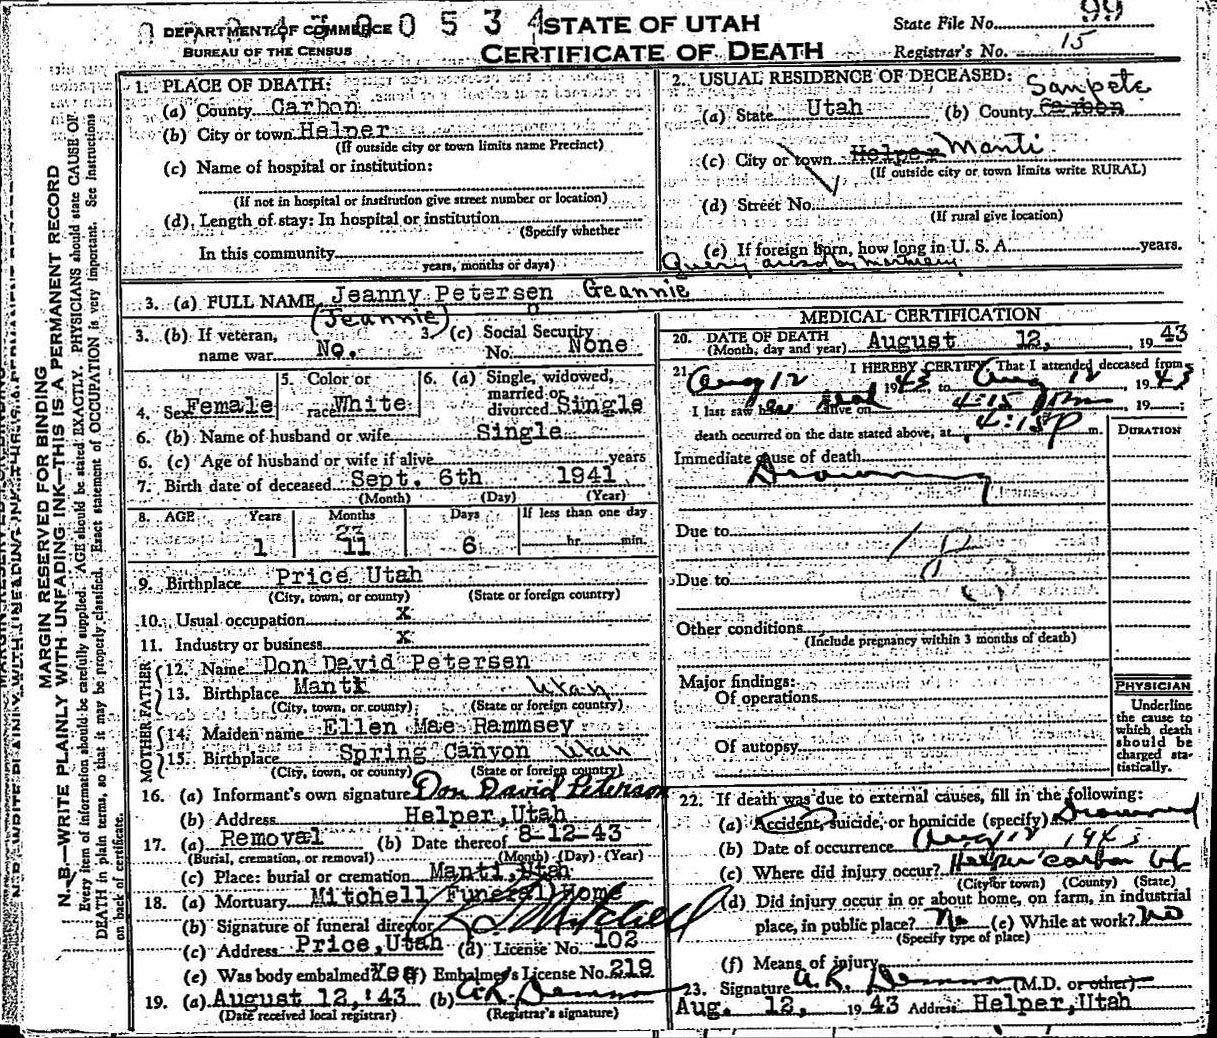 DEPARTMENT OF COMMERCE 0534 STATE OF UTAH State File No. 99
BUREAU OF THE CENSUS CERTIFICATE OF DEATH Registrar's No. 15
MARGIN RESERVED FOR BINDING
N. B.—WRITE PLAINLY WITH UNFADING INK—THIS IS A PERMANENT RECORD
Every item of information should be carefully supplied. AGE should be stated EXACTLY. PHYSICIANS should state CAUSE OF
DEATH in plain terms, so that it may be properly classified. Exact statement of OCCUPATION is very important. See instructions
on back of certificate.
1. PLACE OF DEATH:
(a) County Carbon
(b) City or town Helper
(If outside city or town limits name Precinct)
(c) Name of hospital or institution:
(If not in hospital or institution give street number or location)
(d) Length of stay: In hospital or institution
(Specify whether
In this community
years, months or days)
2. USUAL RESIDENCE OF DECEASED:
(a) State Utah (b) County Carbon Sanpete
(c) City or town Helper Manti
(If outside city or town limits write RURAL)
(d) Street No.
(If rural give location)
(e) If foreign born, how long in U. S. A. years.
3. (a) FULL NAME Jeanny Petersen Geannie
(Jeannie)
3. (b) If veteran, 3. (c) Social Security
name war No. No. None
4. Sex Female 5. Color or race White 6. (a) Single, widowed, married or divorced Single
6. (b) Name of husband or wife Single
6. (c) Age of husband or wife if alive years
7. Birth date of deceased Sept. 6th 1941
(Month) (Day) (Year)
8. AGE Years Months Days If less than one day
23
1 11 6 hr. min.
9. Birthplace Price Utah
(City, town, or county) (State or foreign country)
10. Usual occupation x
11. Industry or business x
FATHER
12. Name Don David Petersen
13. Birthplace Manti Utah
(City, town, or county) (State or foreign country)
MOTHER
14. Maiden name Ellen Mae Rammsey
15. Birthplace Spring Canyon Utah
(City, town, or county) (State or foreign country)
16. (a) Informant's own signature Don David Peterson
(b) Address Helper, Utah
17. (a) Removal (b) Date thereof 8-12-43
(Burial, cremation, or removal) (Month) (Day) (Year)
(c) Place: burial or cremation Manti, Utah
18. (a) Mortuary Mitchell Funeral Home
(b) Signature of funeral director Mitchell
(c) Address Price, Utah (d) License No. 102
(e) Was body embalmed Yes (f) Embalmer's License No. 219
19. (a) August 12, '43 (b)
(Date received local registrar) (Registrar's signature)
MEDICAL CERTIFICATION
20. DATE OF DEATH
(Month, day and year) August 12, 1943
21. I HEREBY CERTIFY, That I attended deceased from
Aug 12 1943 to Aug 12, 1943
I last saw her dead alive on 4:15 pm, 19 ;
death occurred on the date stated above, at 4:15 p m.
DURATION
Immediate cause of death
Drowning
Due to
Due to
Other conditions
(Include pregnancy within 3 months of death)
Major findings:
Of operations
Of autopsy
PHYSICIAN
Underline
the cause to
which death
should be
charged sta-
tistically.
22. If death was due to external causes, fill in the following:
(a) Accident, suicide, or homicide (specify) Drowned
(b) Date of occurrence Aug 12 1943
(c) Where did injury occur? Helper Carbon Ut
(City or town) (County) (State)
(d) Did injury occur in or about home, on farm, in industrial
place, in public place? No (e) While at work? No
(Specify type of place)
(f) Means of injury
23. Signature A. R. (M.D. or other)
Aug. 12, 1943 Address Helper, Utah